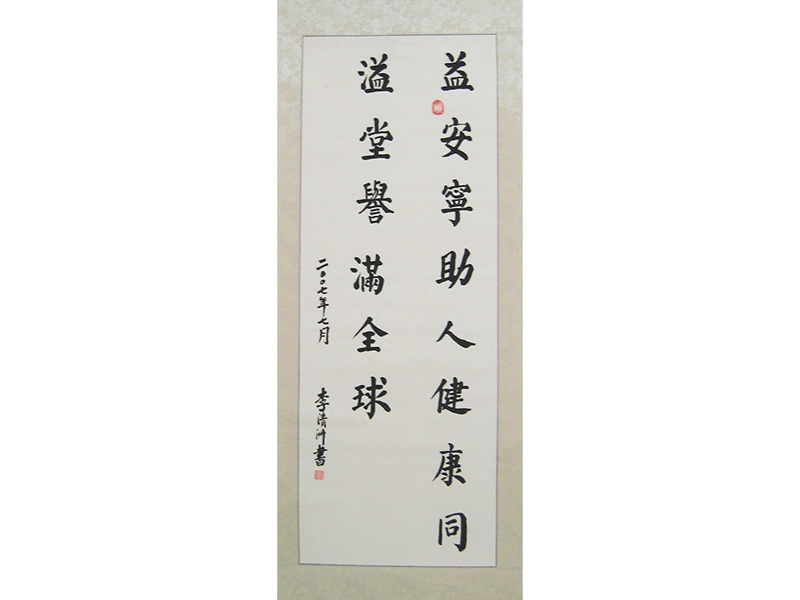 益安寧助人健康同
溢堂譽滿全球
二〇〇七年七月
李清洲書